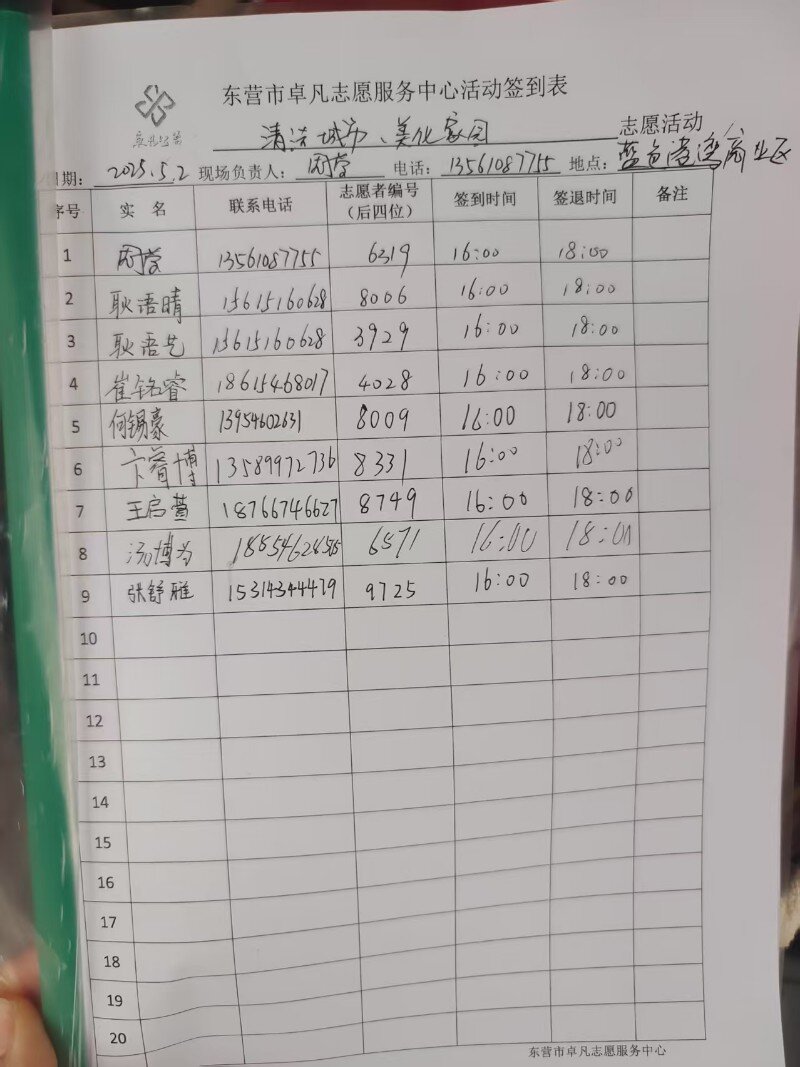 东营市卓凡志愿服务中心活动签到表
清洁城市、美化家园 志愿活动
日期: 2025.5.2 现场负责人: 闵莹 电话: 13561087755 地点: 蓝色港湾商业区
序号 实 名 联系电话 志愿者编号(后四位) 签到时间 签退时间 备注
1 闵莹 13561087755 6319 16:00 18:00
2 耿语晴 15615160628 8006 16:00 18:00
3 耿语艺 15615160628 3929 16:00 18:00
4 崔铭睿 18615468017 4028 16:00 18:00
5 何锡豪 13954602631 8009 16:00 18:00
6 卞睿博 13589972736 8331 16:00 18:00
7 王启萱 18766746627 8749 16:00 18:00
8 6571 16:00 18:00
9 张舒雅 15314344479 9725 16:00 18:00
10
11
12
13
14
15
16
17
18
19
20
东营市卓凡志愿服务中心